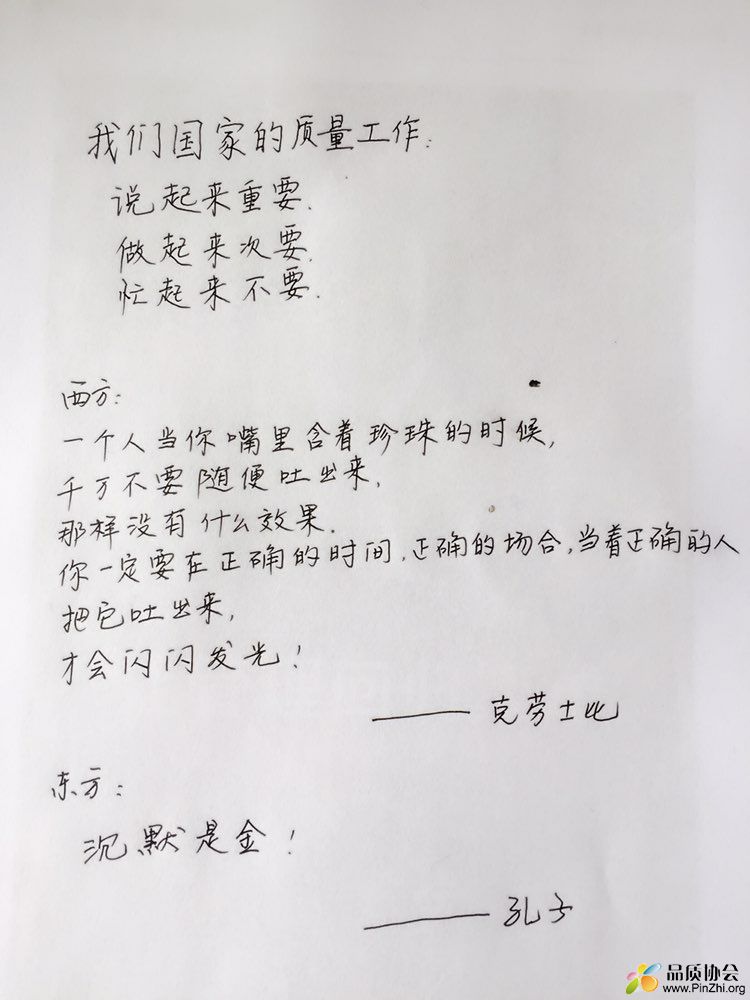 我们国家的质量工作:
说起来重要.
做起来次要.
忙起来不要.
西方:
一个人当你嘴里含着珍珠的时候,
千万不要随便吐出来,
那样没有什么效果.
你一定要在正确的时间,正确的场合,当着正确的人
把它吐出来,
才会闪闪发光!
——克劳士比
东方:
沉默是金!
——孔子
品质协会
www.PinZhi.org